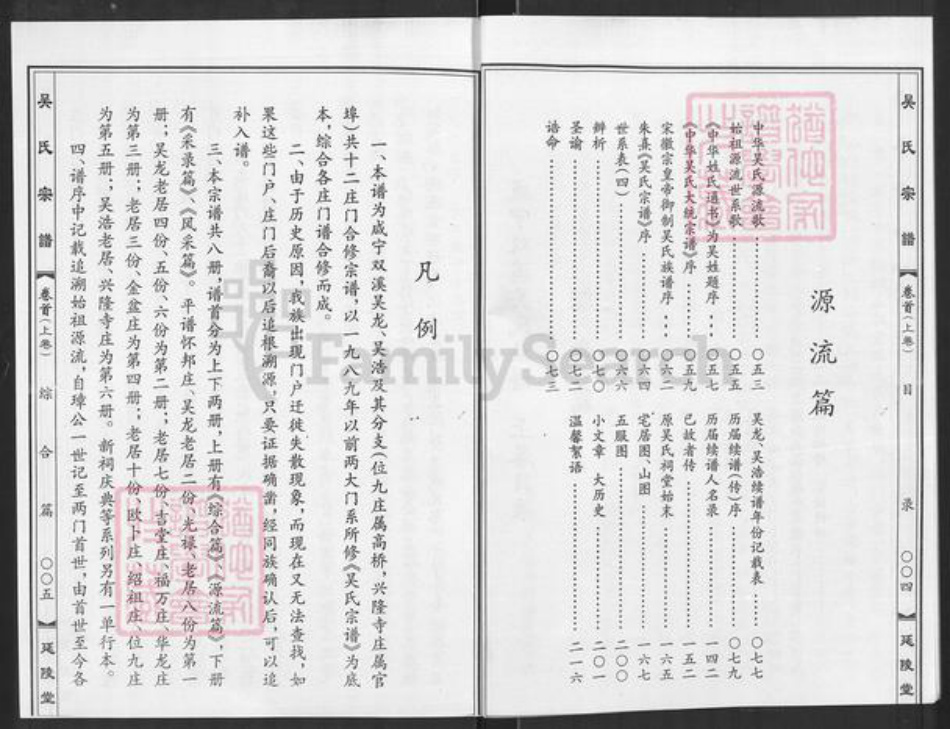 吴氏宗谱 【卷首(上卷) 目录 〇〇四】 延陵堂
源流篇
中华吴氏源流歌 〇五三
始祖源流世系歌 〇五五
《中华姓氏通书》为吴姓题序 〇五七
《中华吴氏大统宗谱》序 〇五九
宋徽宗皇帝御制吴氏族谱序 〇六二
朱熹《吴氏宗谱》序 〇六四
世系表(四) 〇六六
辨析 〇七〇
圣谕 〇七二
诰命 〇七三
吴龙、吴浩续谱年份记载表 〇七七
历届续谱(传)序 〇七九
历届续谱人名录 一四二
已故者传 一五二
原吴氏祠堂始末 一六五
宅居图、山图 一六七
五服图 二〇〇
小文章 大历史 二〇一
温馨絮语 二一六
凡例
一、本谱为咸宁双溪吴龙、吴浩及其分支(位九庄属高桥,兴隆寺庄属官
埠)共十二庄门合修宗谱,以一九八九年以前两大门系所修《吴氏宗谱》为底
本,综合各庄门谱合修而成。
二、由于历史原因,我族出现门户迁徙失散现象,而现在又无法查找,如
果这些门户、庄门后裔以后追根溯源,只要证据确凿,经同族确认后,可以追
补入谱。
三、本宗谱共八册,谱首分为上下两册,上册有《综合篇》、《源流篇》,下册
有《采录篇》、《风采篇》。平谱怀邦庄、吴龙老居二份、光禄、老居八份为第一
册;吴龙老居四份、五份、六份为第二册;老居七份、吉堂庄、福万庄、华龙庄
为第三册;老居三份、金盆庄为第四册;老居十份、欧卜庄、绍祖庄、位九庄
为第五册;吴浩老居、兴隆寺庄为第六册。新祠庆典等系列另有一单行本。
四、谱序中记载追溯始祖源流,自璋公一世记至两门首世,由首世至今各
吴氏宗谱 【卷首(上卷) 综合篇 〇〇五】 延陵堂
FamilySearch